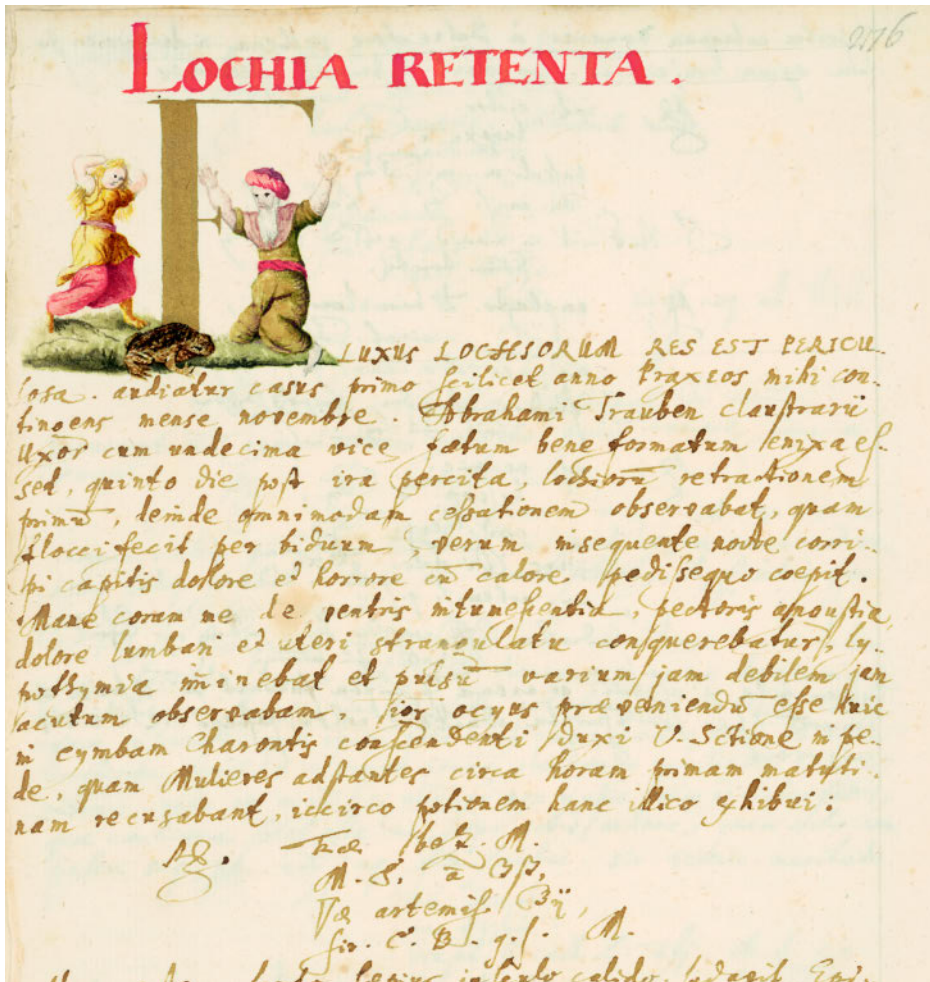 276
LOCHIA RETENTA.
FLUXUS LOCHIORUM RES EST PERICU-
losa. audiatur casus primo scilicet anno Praxeos mihi con-
tingens mense novembre. Abrahami Trauben claustrarii
Uxor cum undecima vice fœtum bene formatum enixa es-
set, quinto die post ira percita, lochiorū retractionem
primū, deinde omnimodam cessationem observabat, quam
flocci fecit per biduum, verum insequente nocte corri-
pi capitis dolore et horrore cū calore pedissequo coepit.
Mane coram me de ventris intumescentia, pectoris angustia,
dolore lumbari et uteri strangulatu conquerebatur, ly-
pothymia im̄inebat et pulsū varium jam debilem jam
acutum observabam, ocyus præveniendū esse huic
in cymbam Charontis conscendenti duxi V. Sctione in pe-
de, quam Mulieres adstantes circa horam primam matuti-
nam recusabant, iccirco potionem hanc illico exhibui:
M.
M. S. ā
artemis.
C. B. q. s. M.
calido